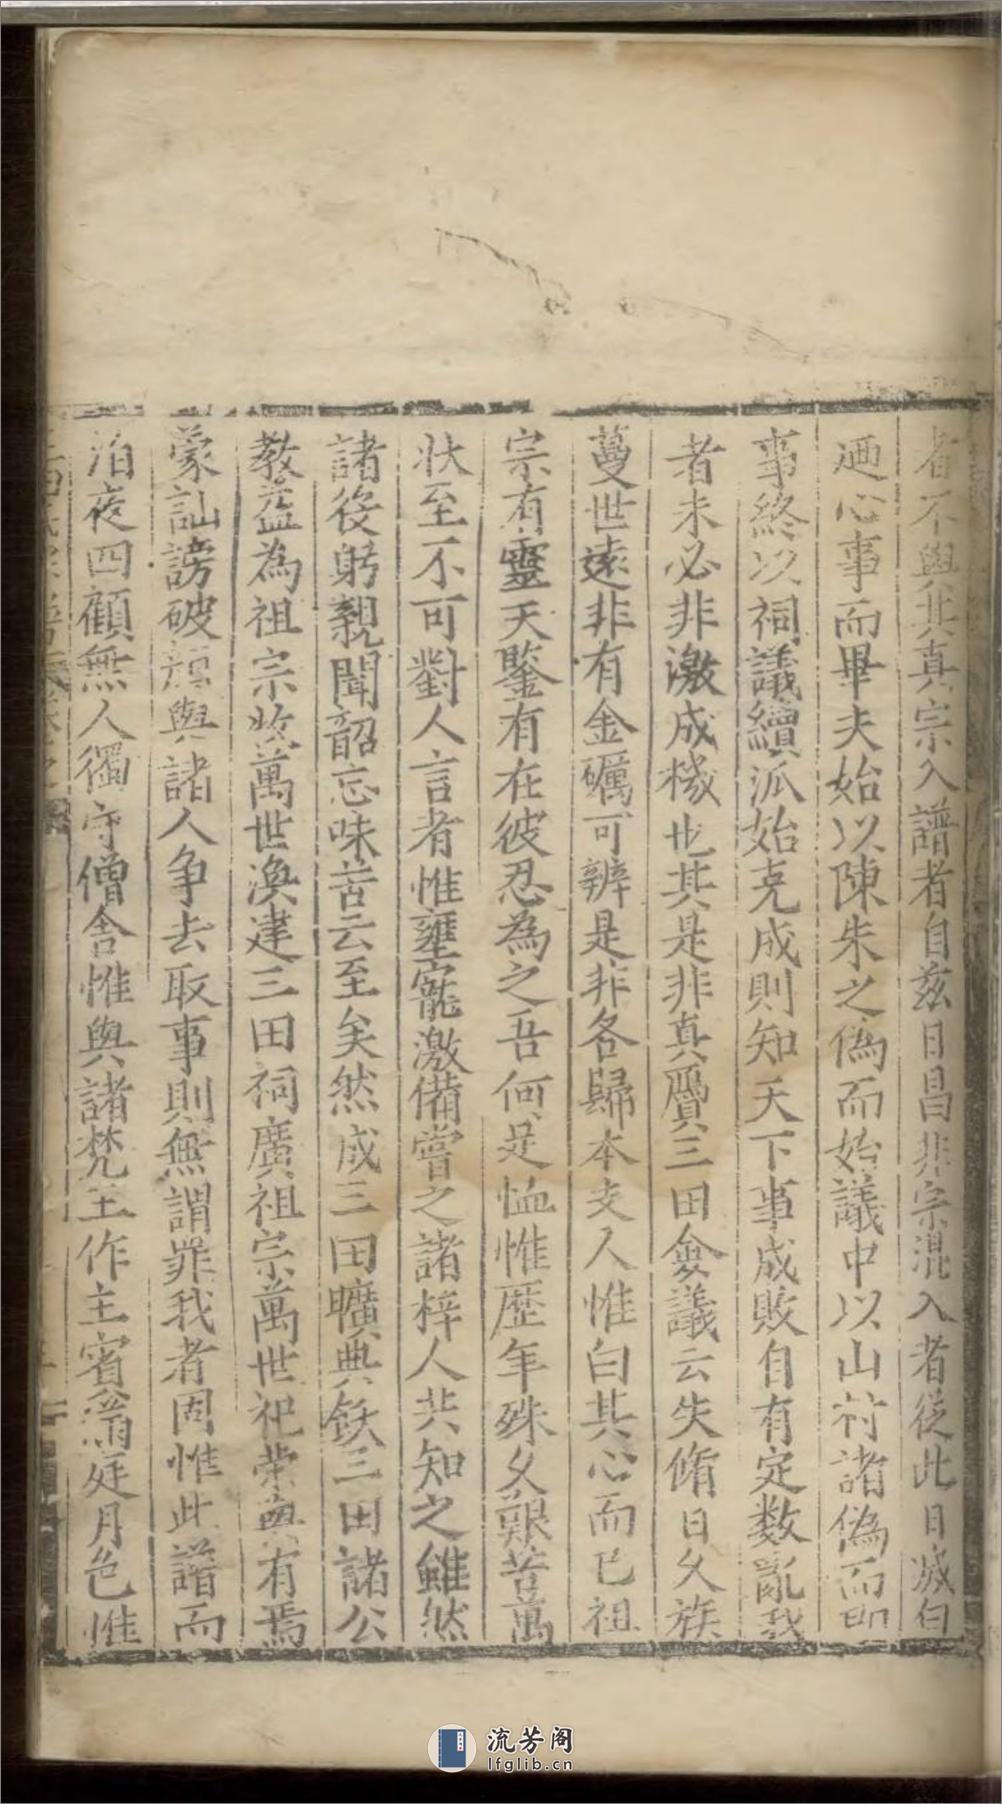 者不與其真宗入譜者自茲日昌非宗混入者從此日滅白
迺心事而畢夫始以陳朱之偽而始議中以山村諸偽而即
事終以祠議續派始克成則知天下事成敗自有定數亂我
者未必非激成機也其是非真贗三田僉議云失脩日久族
蔓世遠非有金礪可辨是非各歸本支人惟白其心而已祖
宗有靈天鑒有在彼忍為之吾何足恤惟歷年殊久艱苦萬
狀至不可對人言者惟壅寵激備嘗之諸梓人共知之雖然
諸後躬親聞韶忘味苦云至矣然成三田曠典飫三田諸公
教益為祖宗收萬世渙建三田祠廣祖宗萬世祀榮典有焉
蒙訕謗破頭與諸人爭去取事則無謂罪我者固惟此譜而
泊夜四顧無人獨守僧舍惟與諸梵王作主賓滿庭月色惟
流芳阁
lfglib.cn